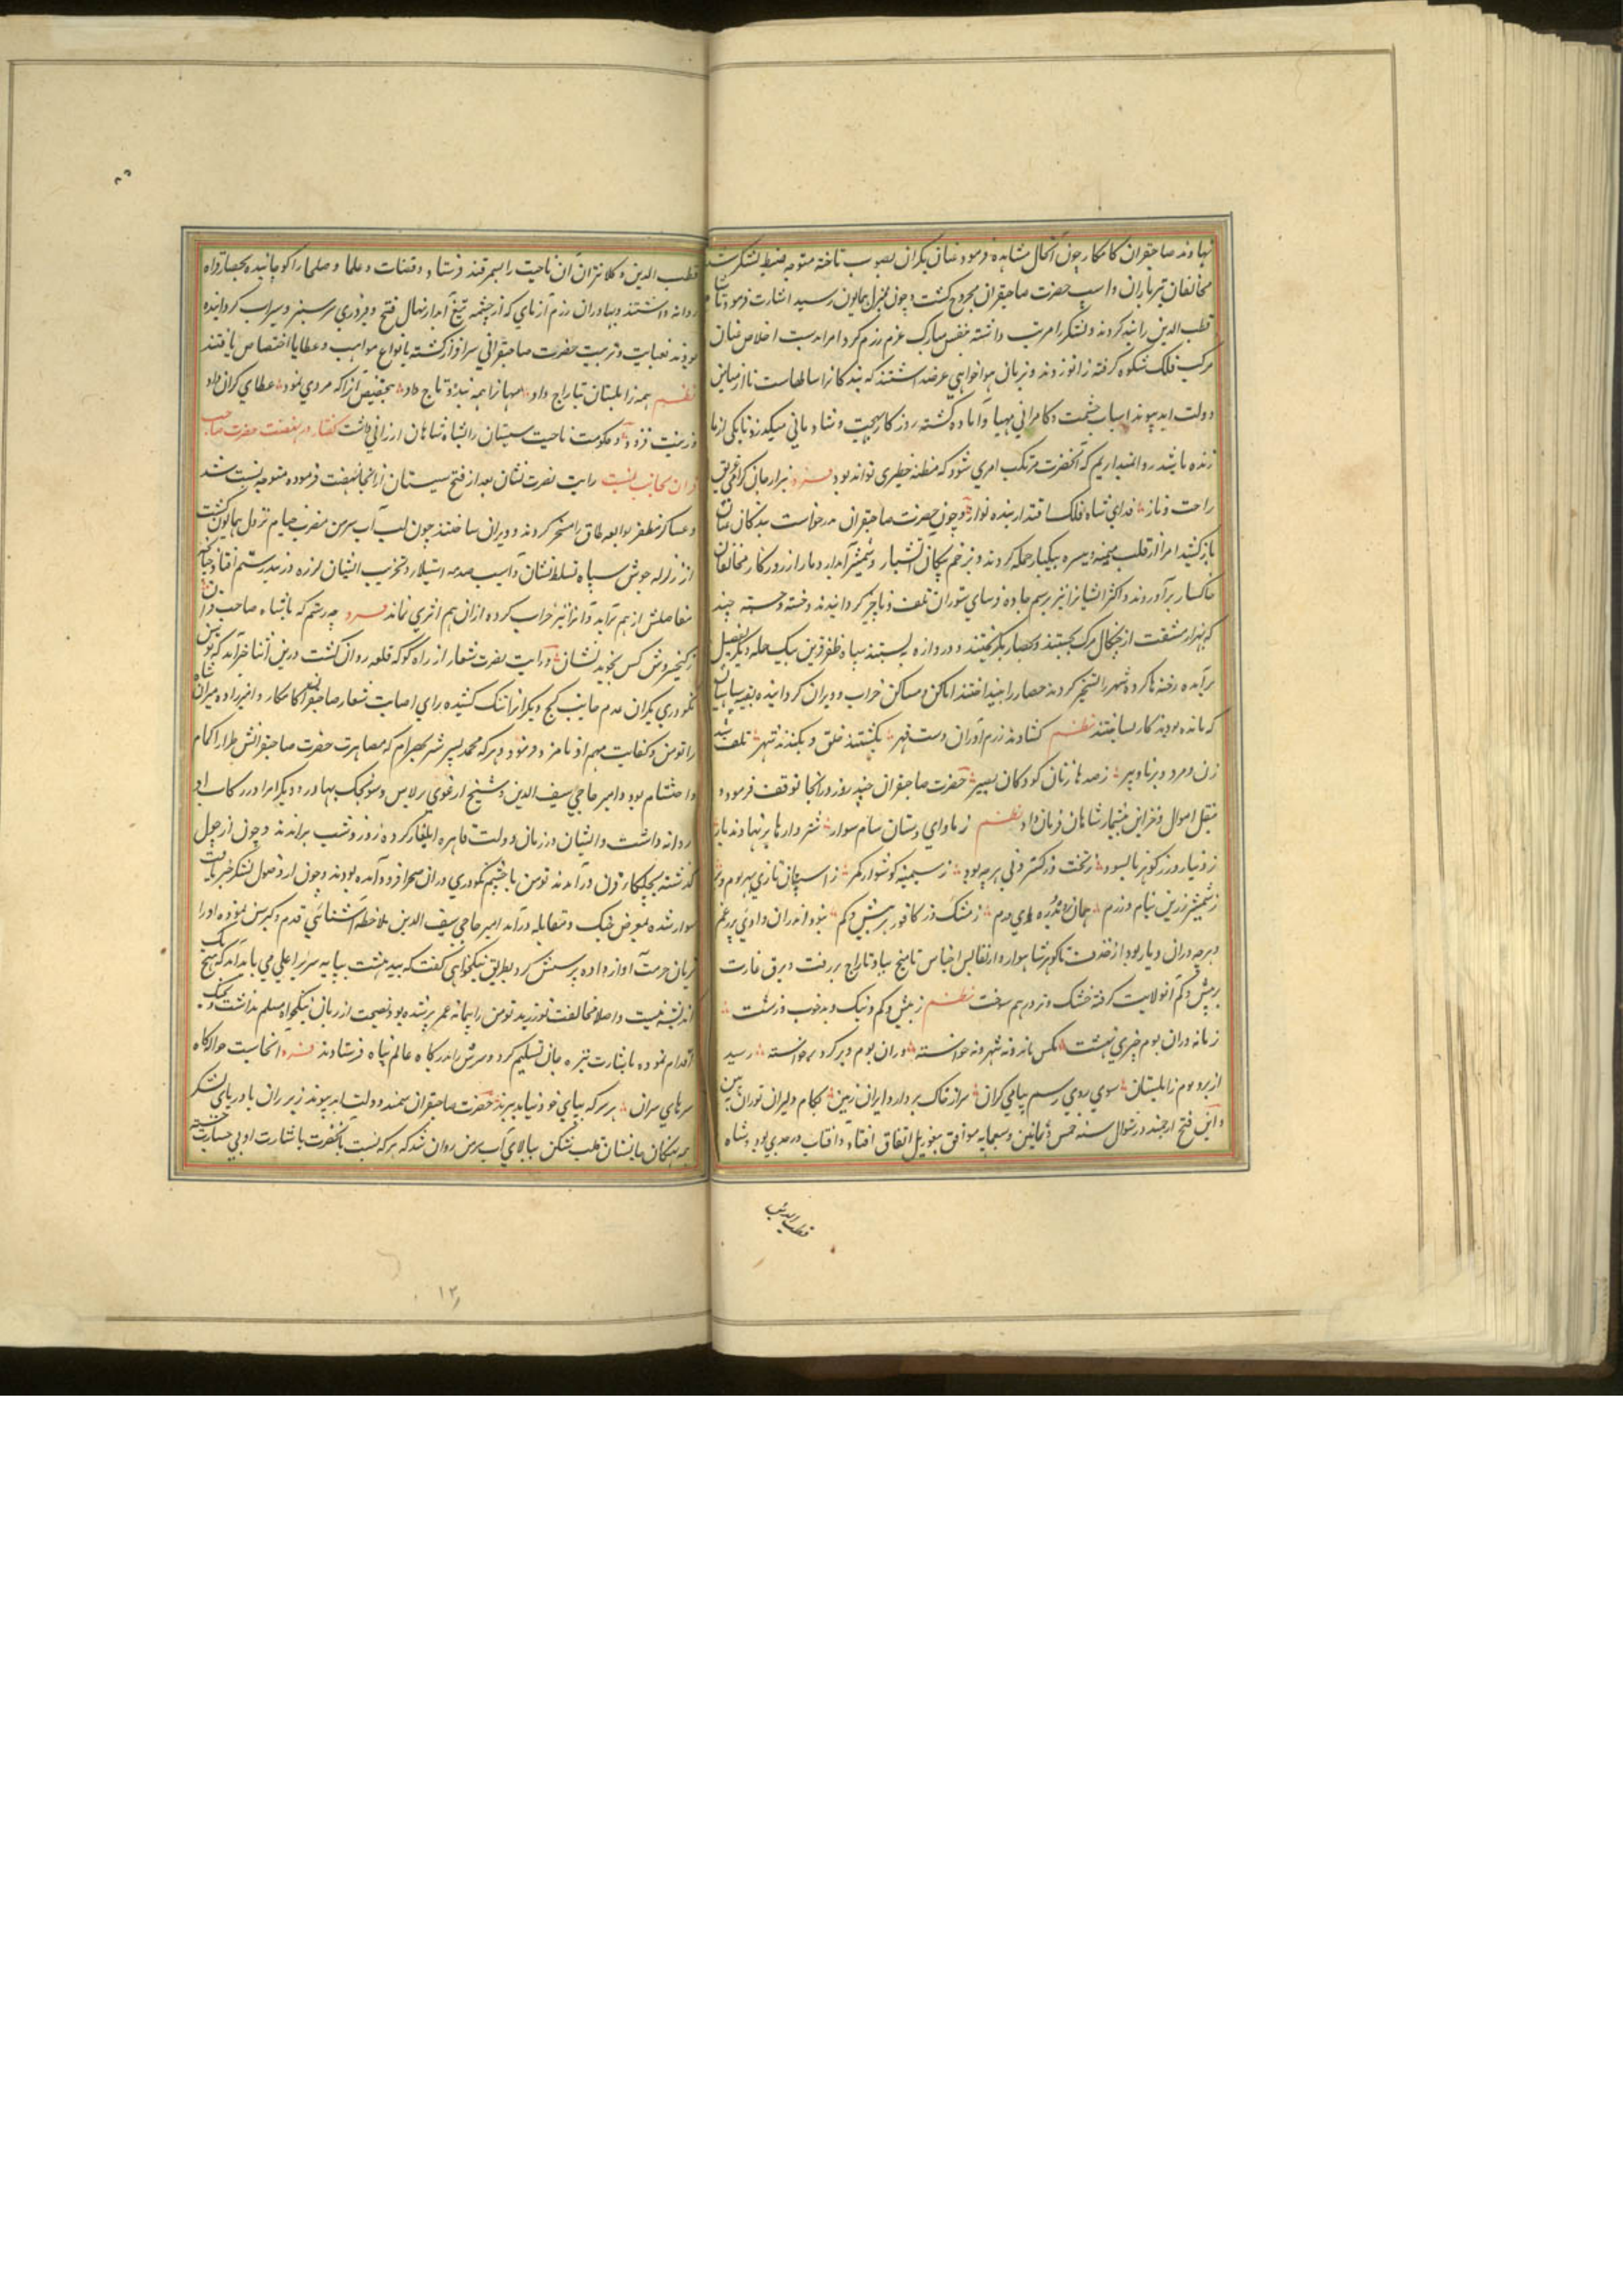 نهادند صاحبقران کامکار چون آنحال مشاهده فرمود عنان یکران بصوب تاخته متوجه ضبط لشکر شد
مخالفان تیرباران واسپ حضرت صاحبقران مجروح کشت و چون بمنزل همایون رسید اشارت فرمود تا شاه
قطب الدین را بند کردند و لشکر را مرتب داشته بنفس مبارک عزم رزم کرد امرا بدست اخلاص عنان
مرکب فلک شکوه کرفته زانو زدند و بزبان هواخواهی عرضه داشتند که بندکانرا سالهاست تا از میامن
دولت ابد پیوند اسباب حشمت و کامرانی مهیا و آماده کشته روزکار ببهجت و شادمانی میکذرد تا یکی از ما
زنده باشد روا نمیداریم که آنحضرت مرتکب امری شود که مظنه خطیری تواند بود فرد هزار جان کرامی غریق
راحت و ناز فدای شاه فلک اقتدار بنده نواز و چون حضرت صاحبقران درخواست بندکان عنان
باز کشید امرا از قلب و میمنه و میسره بیکبار حمله کردند و بزخم پیکان آتشبار و شمشیر آبدار دمار از روزکار مخالفان
خاکسار برآوردند و اکثر ایشانرا نیز برسم جاده وسای ستوران تلف و ناچیز کردانیدند و خسته و جسته چند
که بهزار مشقت از چنکال مرک بجستند و بحصار بکریختند و دروازه ببستند سپاه ظفر قرین بیک حمله دیکر بفصیل
برآمده رخنه ها کرده شهر را تسخیر کردند حصار را بینداختند اماکن و مساکن خراب و ویران کردانیده بقیه سپاهیان
که مانده بودند کار بساختند نظم کشادند رزم آوران دست قهر بکشتند خلق و بکندند شهر تلف شد
زن و مرد و برنا و پیر ز صد ها زنان کودکان بصیر حضرت صاحبقران چند روز در انجا توقف فرمود و
بنقل اموال و خزاین بیشمار شاهان فرمان داد نظم ز ماوای دستان سام سوار شتر وارها بر نهادند بار
ز دینار و زر کوهر نابسود ز تخت و ز کستردنی هر چه بود ز سیمینه کوشوار کمر ز اسپان تازی
ز شمشیر زرین نیام و ز زم همان بدره های درم ز مشک و ز کافور بیش و کم نبود اندران داوری
و هرچه دران دیار بود از خزف تا کوهر شاهوار و از نفایس اجناس تا میخ بباد تاراج بررفت و برق غارت
بر بیش و کم آنولایت کرفته خشک و تر درهم سوخت نظم ز بیش و کم و نیک و بد خوب و زشت
زمانه دران بوم چیزی نهشت نه کس ماند و نه شهر و نه خواسته دران بوم و بر کرد برخواسته رسید
از بر و بوم زابلستان سوی روی رسم پیامی کران سر از خاک بردار و ایران زمین بکام دلیران توران ببین
و این فتح ارجمند در شوال سنه خمس و ثمانین و سبعمایه موافق تنغوزییل اتفاق افتاد و آفتاب در جدی بود و شاه
قطب الدین
قطب الدین و کلانتران آن ناحیت را بسمرقند فرستاد و قضات و علما و صلحا را کوچانیده بحصار فراه
روانه داشتند و بهادران رزم آزمای که از چشمه تیغ آبدار نهال فتح و فیروزی سرسبز و سیراب کردانیده
بودند بعنایت و تربیت حضرت صاحبقرانی سرافراز کشته بانواع مواهب و عطایا اختصاص یافتند
نظم همه زابلستان بتاراج داد مهانرا همه بدره و تاج داد بتخصیص آنرا که مردی نمود عطای کران داد
و زینت فزود و حکومت ناحیت سیستان را بشاه شاهان ارزانی داشت کفتار در نهضت حضرت صاحب
قران بجانب بست رایت نصرت نشان بعد از فتح سیستان از انجا نهضت فرموده متوجه بست شد
و عساکر مظفر لوا بعد طاق را مسخر کردند و ویران ساختند چون لب آب هیرمن مضرب خیام نزول همایون کشت
از زلزله جوش سپاه تسلط نشان و آسیب صدمه استیلا و تخریب ایشان لرزه در بند رستم افتاد چنانکه
مفاصلش از هم برآید و انرا نیز خراب کرده ازان هم اثری نماند فرد چه رستم که با شاه صاحب قران
ز کیخسروش کس نجوید نشان و رایت نصرت شعار از راه کوکه قلعه روان کشت درین اثنا خبر آمد که تومن
نکودری یکران عدم بجانب کیج و مکران تنک کشیده رای اصابت شعار صاحبقران کامکار امیرزاده میران شاه
را تومن و کفایت مهم او نامزد فرمود و هرکه محمد پسر شیر بهرام که مصاهرت حضرت صاحبقرانش طراز اکمام
واحتشام بود و امیر حاجی سیف الدین و شیخ ارغوی برلاس و سونجک بهادر و دیکر امرا در رکاب او
روانه داشت و ایشان در زمان دولت قاهره ایلغار کرده روز و شب براندند و چون از چول
کذشته بچلکاء قرن درآمدند تومن با خشم نکودری دران صحرا فرود آمده بودند و چون از وصول لشکر خبر یافت
سوار شده بمعرض جنک و مقابله درآمد امیر حاجی سیف الدین بملاحظه آشنائی قدم و کبر سن نموده او را
بزبان حرمت آواز داده پرسش کرد بطریق نیکخواهی کفت که بیدهشت بپایه سریر اعلی می باید آمد که هیچ
اندیشه نیست و اصلا مخالفت نورزید تومن را پیمانه عمر پر شده بود نصیحت از زبان نیکخواه مسلم نداشت و بجنک
اقدام نموده با بشارت نیزه جان تسلیم کرد و سرش را بدرکاه عالم پناه فرستادند فرد آنجاست حوالکاه
سرهای سران هر سر که بپای خود نیاید ببرند حضرت صاحبقران سمند دولت ابد پیوند زیر ران با دریای لشکر
همه نهنکان جانستان قلب شکن ببالای آب هیرمن روان شد که هرکه نسبت بآنحضرت باشارت او بی جسارت جسته
۱۲۸